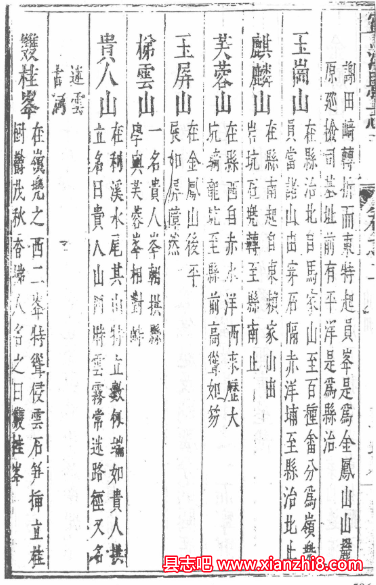 謝田崎轉折而東特起員峯是爲金鳳山山麓
原廵檢司基址前有平洋是爲縣治
玉崗山 在縣治北自馬家山至百種畬分爲嶺㙡
員當諸山由穿石隔赤洋埔至縣治北止
麒麟山 在縣南起自東賴家山出
岩坑至㙡轉至縣南止
芙蓉山 在縣西自赤水洋西來歷大
坑 龍坑至縣前高聳如笏
玉屏山 在金鳳山後平
展如屏障然
梯雲山 一名貴人峯朝拱縣
學與芙蓉峯相對峙
貴人山 在利溪水尾其山特立數仞端如貴人拱
立名曰貴人山 時雲霧常迷路徑又名
迷雲
書滿
雙桂峯 在嶺㙡之西二峯特聳侵雲石笋揷立桂
樹鬱茂秋香襲人名之曰雙桂峯
县志吧 www.xianzhi8.com